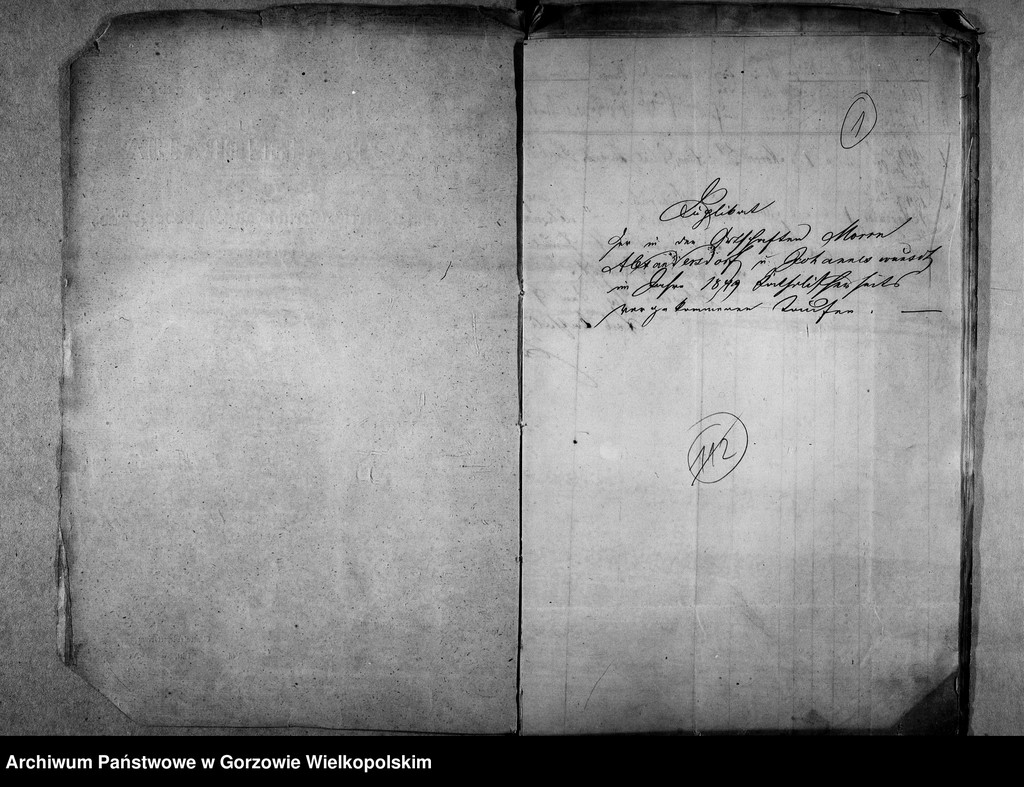 1
Duplikat
der in den Ortschaften Morrn
Alexandersdorf u Johanneswunsch
im Jahre 1849 katholischerseits
vorgekommenen Taufen. —
112
Archiwum Państwowe w Gorzowie Wielkopolskim